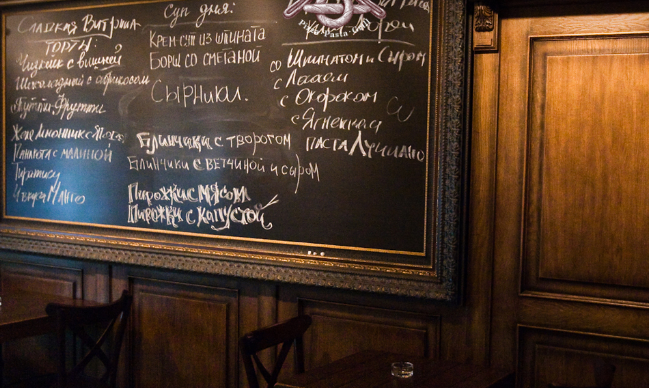 Сладкая Витрина
Торты:
Чизкейк с вишней
Шоколадный с абрикосом
Фруттис
с малиной
Тирамису
Манго
Суп дня:
Крем-суп из шпината
Борщ со сметаной
Сырники.
Блинчики с творогом
Блинчики с ветчиной и сыром
Пирожки с мясом
Пирожки с капустой
со Шпинатом и Сыром
с Окороком
с Ягненком
Паста Лучиано